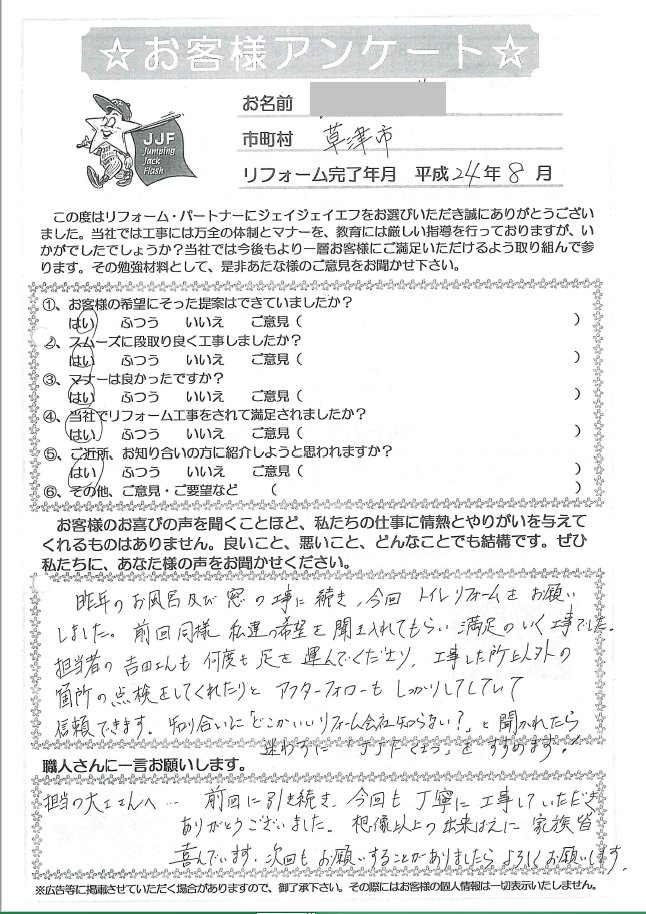 ☆お客様アンケート☆
お名前
JJF
Jumping
Jack
Flash
市町村 草津市
リフォーム完了年月 平成24年8月
この度はリフォーム・パートナーにジェイジェイエフをお選びいただき誠にありがとうござい
ました。当社では工事には万全の体制とマナーを、教育には厳しい指導を行っておりますが、い
かがでしたでしょうか？当社では今後もより一層お客様にご満足いただけるよう取り組んで参
ります。その勉強材料として、是非あたな様のご意見をお聞かせ下さい。
①、お客様の希望にそった提案はできていましたか？
はい ふつう いいえ ご意見（ ）
②、スムーズに段取り良く工事しましたか？
はい ふつう いいえ ご意見（ ）
③、マナーは良かったですか？
はい ふつう いいえ ご意見（ ）
④、当社でリフォーム工事をされて満足されましたか？
はい ふつう いいえ ご意見（ ）
⑤、ご近所、お知り合いの方に紹介しようと思われますか？
はい ふつう いいえ ご意見（ ）
⑥、その他、ご意見・ご要望など （ ）
お客様のお喜びの声を聞くことほど、私たちの仕事に情熱とやりがいを与えて
くれるものはありません。良いこと、悪いこと、どんなことでも結構です。ぜひ
私たちに、あなた様の声をお聞かせください。
昨年のお風呂及び窓の工事に続き、今回トイレリフォームをお願い
しました。前回同様私達の希望を聞き入れてもらい満足のいく工事でした。
担当者の吉田さんも何度も足を運んでくださり、工事した所以外の
箇所の点検をしてくれたりとアフターフォローもしっかりしてしていて
信頼できます。知り合いに「どこかいいリフォーム会社知らない？」と聞かれたら
迷わずに「JJFくさつ」をすすめます！
職人さんに一言お願いします。
担当の大工さんへ… 前回に引き続き、今回も丁寧に工事していただき
ありがとうございました。想像以上の出来ばえに家族皆
喜んでいます。次回もお願いすることがありましたらよろしくお願いします。
※広告等に掲載させていただく場合がありますので、御了承下さい。その際にはお客様の個人情報は一切表示いたしません。